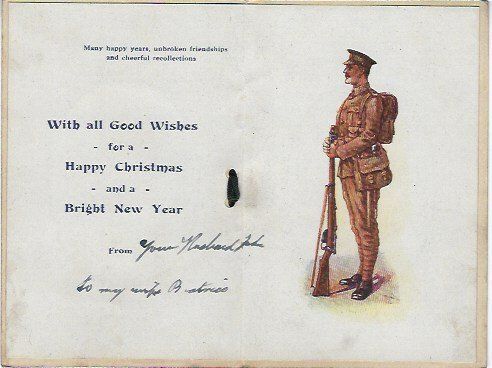 Many happy years, unbroken friendships
and cheerful recollections
With all Good Wishes
- for a -
Happy Christmas
- and a -
Bright New Year
From Your Husband John
to my wife Beatrice